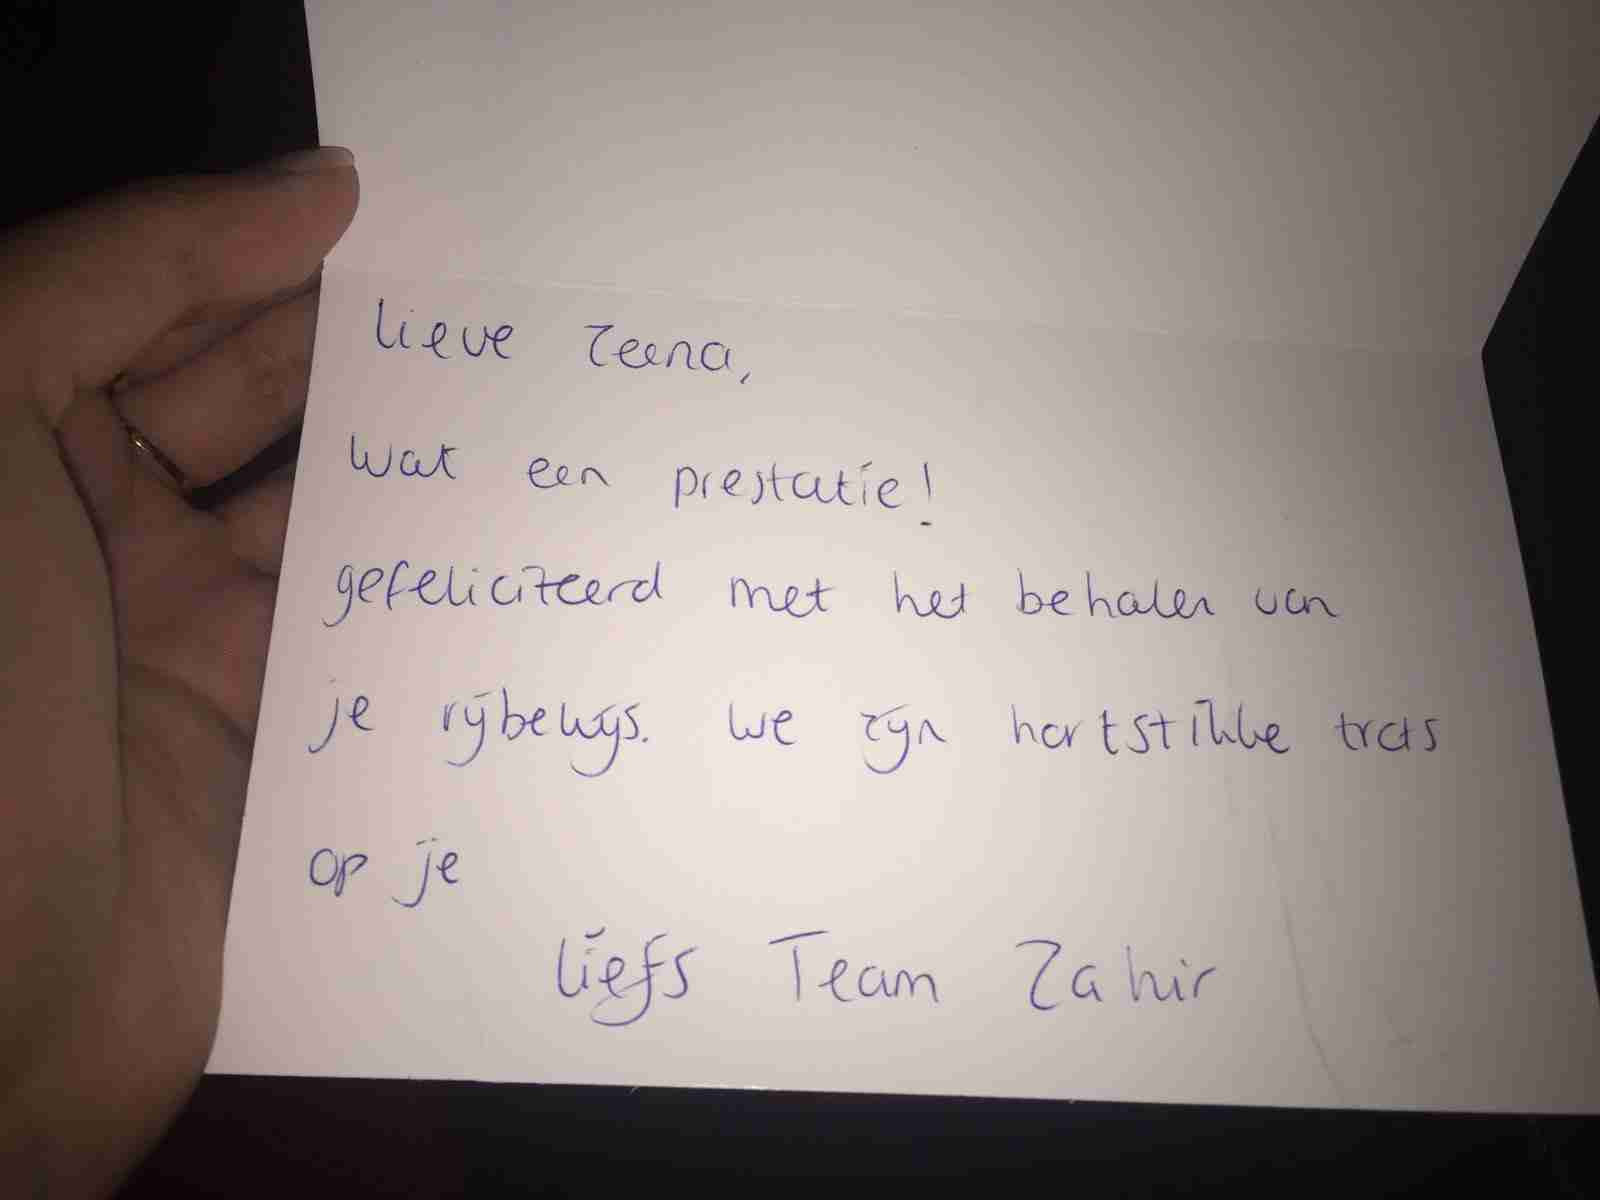 lieve Zeena,
wat een prestatie!
gefeliciteerd met het behalen van
je rijbewijs. We zijn hartstikke trots
op je
liefs Team Zahir